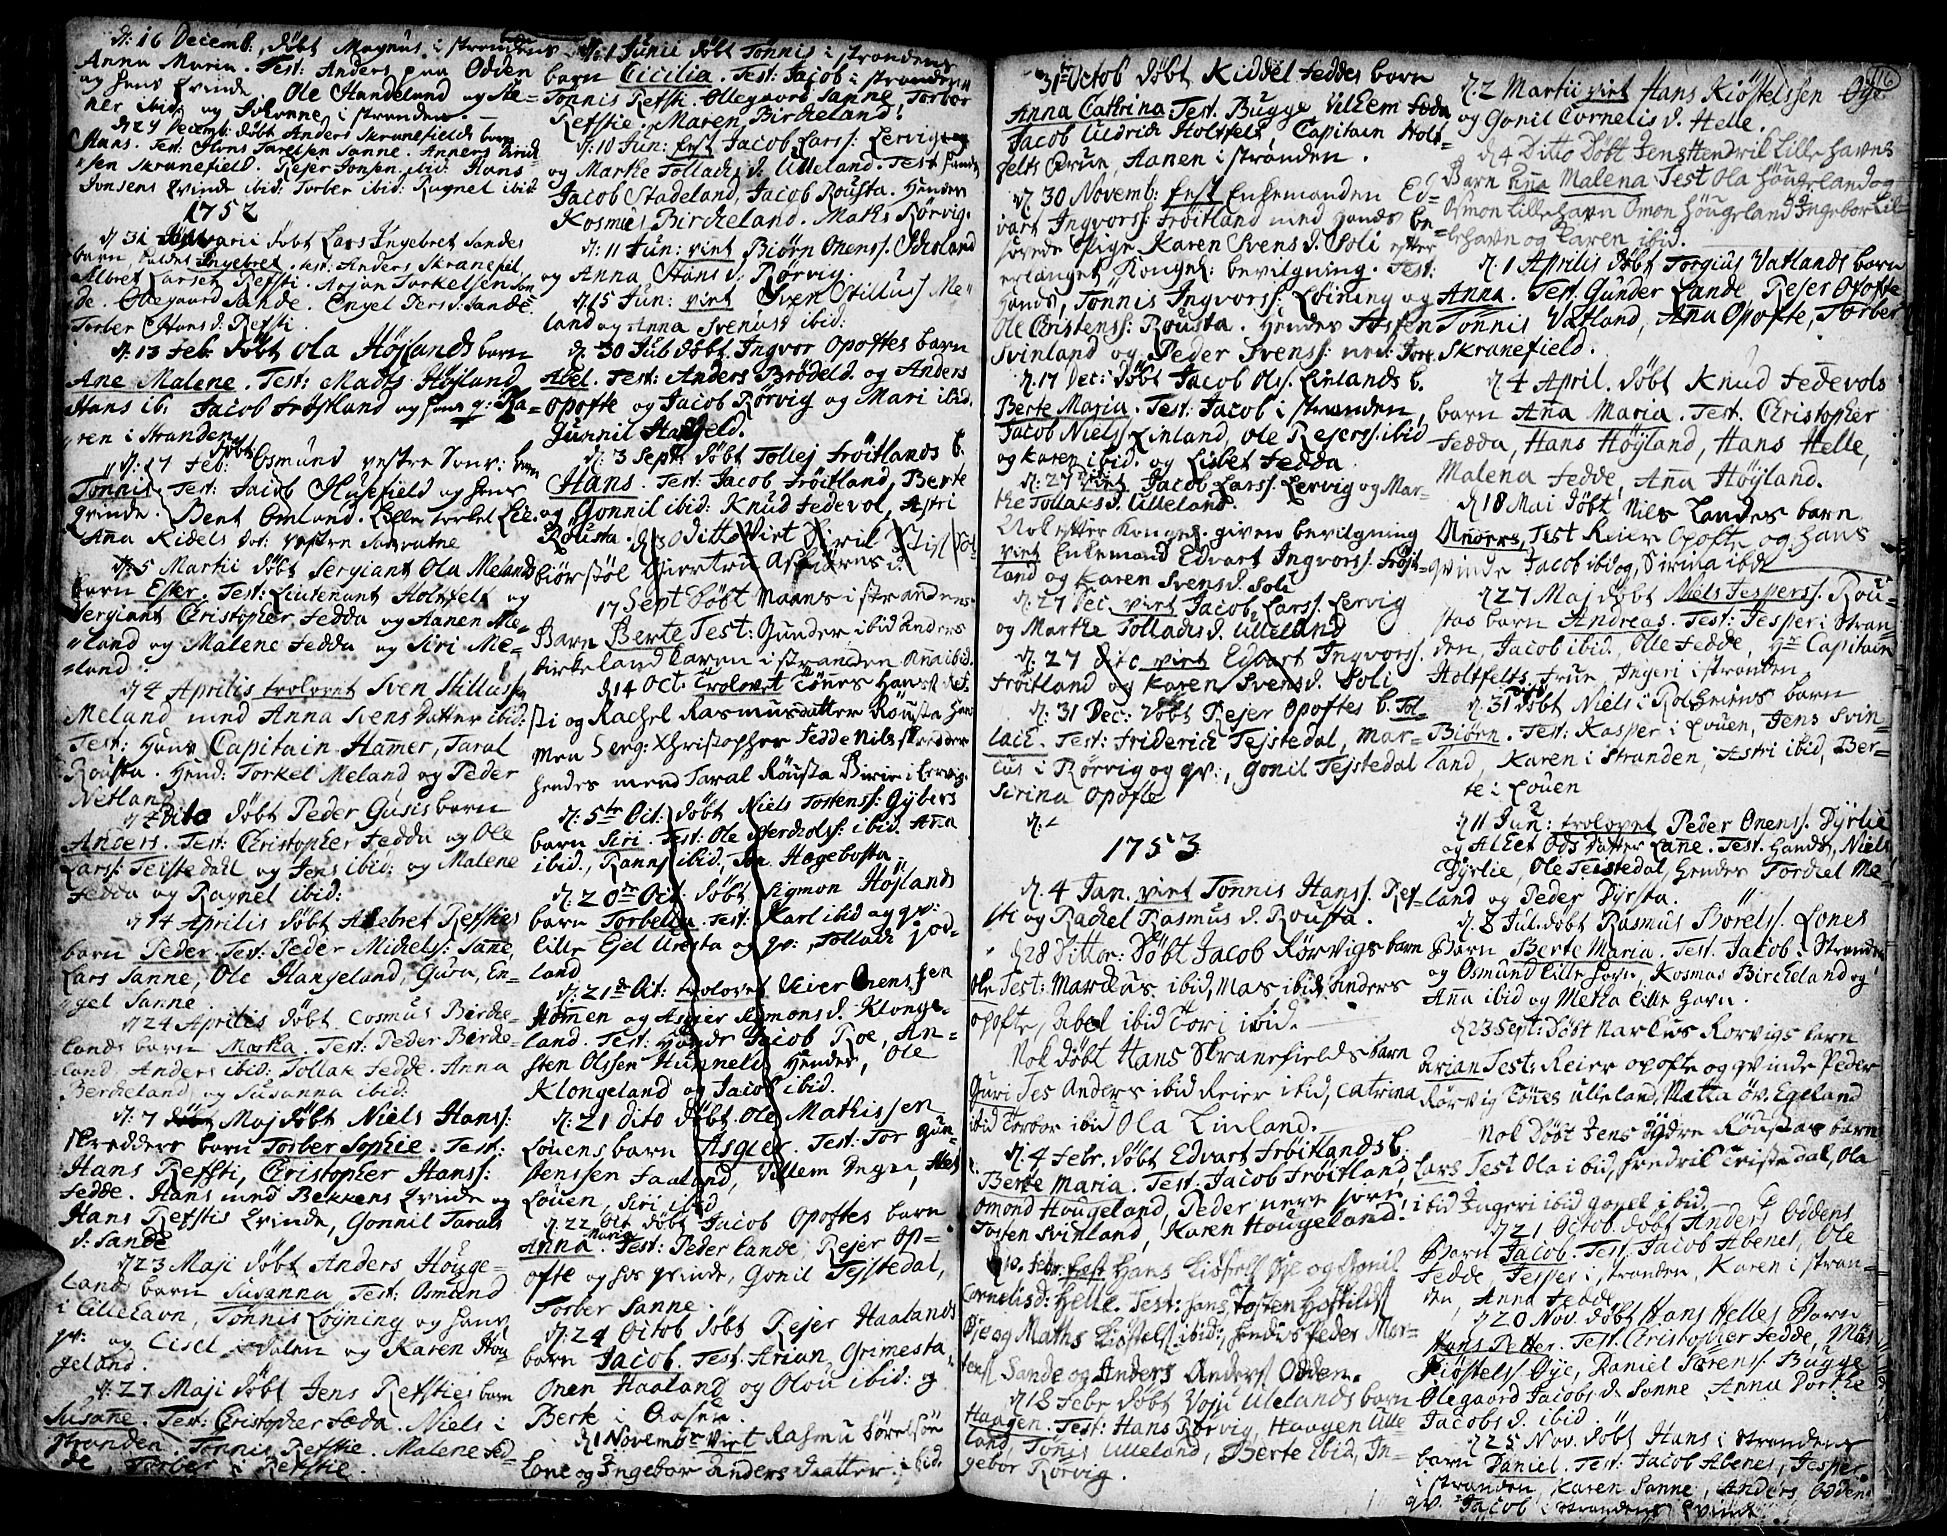 d: 16 Decemb: døbt Magnus i strandens
Anna Maria. Test: Anders paa Odden
og hans Qvinde, Ole Handeland og
ner ibid: og Johanne i stranden.
d 27 Decemb: døbt Anders Skranefields barn
Hans. Test. Hans Sanne. Anners
sen Skranefield. Rejer Jonsen ibid: Hans
Jonsens Qvinde ibid: Torber ibid: Ragnel ibid:
1752
d 31 Januarii døbt Lars Ingebret Sandes
barn, Ingebret. test: Anders Skranefil,
Albret Larsen Refsti. Arjan Torkelsen San
de. Ollegaard Sande. Engel Pers d: Sande
Torber Hans d: Refsti.
d: 13 Feb: døbt Ola Højlands barn
Ane Malene. Test: Mads Højland
Hans ib: Jacob Frøjtland og hans q: Ka-
ren i Stranden
d: 17 Feb: døbt Osmund vestre barn
Tönnis. Test: Jacob Husefield og hans
qvinde. Bent Omland. Lille
Aña Kidels dot: vestre
d: 5 Martii døbt Sergiant Ola Melands
barn Ester. Test: Lieutenant Holtfelt og
Sergiant Christopher Fedda og Aanen Me-
land og Malene Fedda og Siri Me-
land.
d 4 Aprilis trolovet Sven Stillufs
Meland med Anna Svens datter ibid:
Test: Hans Capitain Hamer, Taral
Rousta. Hend: Torkel Meland og Peder
Netland
d dito døbt Peder Gusis barn
Anders. Test: Christopher Fedda og Ole
Larss: Teistedall og Jens ibid: og Malene
Fedda og Ragnel ibid:
d 14 Aprilis døbt Albret Refsties
barn Peder. Test: Peder Michelss: Sane,
Lars Sanne, Ole Hangeland, Guru, En-
gel Sanne.
d 24 Aprilis døbt Cosmus Bircke-
lands barn Marta. Test: Peder Bircke-
land, Anders ibid: Tollak Fedde. Anna
Berckeland og Susanna ibid:
d: 7 Maj døbt Niels Hanss:
skredders barn Torber Sophie. Test:
Hans Refsti, Christopher Hanss:
Fedde. Hans med Bekkens Qvinde og
Hans Refstis Qvinde, Gonnil Tarals
d: Sande
d 23 Maji døbt Anders Houge-
lands barn Susanna Test: Osmund
i Lillehavn, Tönnis Løyning og hans
qv: og Cisel i Dalen og Karen Hou
geland.
d: 27 Maji døbt Jens Refsties barn
Susane. Test: Christopher Feda. Niels i
stranden. Tönnis Refstie. Malene Fed-
de, Torber i Refstie.
d: 1 Junii døbt Tönnis i strandens
barn Cicilia. Test: Jacob i stranden
Tönnis Refsti. Ollegaard Sanne, Torber
Refstie. Maren Birckeland.
d: 10 Jun: fest Jacob Larss: Lervig
og Marthe Tollachs d: Ulleland. Test
Jacob Stadeland, Jacob Rousta. Hendes
Kosmus Birckeland. Mathis Rörvig.
d: 11 Jun: viet Biørn Onenss.
og Anna Hans d: Rørvig.
d 15 Jun: viet Sven Stillufs Me-
land og Anna Svensd ibid:
d: 30 Jul døbt Ingvor Opoftes barn
Abel. Test: Anders Brödeld og Anders
Opofte og Jacob Rörvig og Mari ibid.
Gunnil
d: 3 Sept: døbt Tollej Frøitlands b:
Hans. Test: Jacob Frøitland, Berte
og Gonnil ibid: Knud Fedevol, Astri
Rousta. d 30 ditto virt
biørstøl Giertru Asbiörns d
17 Sept døbt Maans i strandens
Barn Berte Test: Gunder ibid Anders
birkeland Karen i stranden Aña ibid.
d 14 Oct: trolovet Tönes Hans Ref
sti og Rachel Rasmusdatter Rousta Hans
men Serg: Christopher Fedde Nils skredder
hendes mend Taral Rousta Birie i Lervig
d: 5te Oct: døbt Niels Tostenss: Gyberg
barn Siri. Test: Ole ibid. Aña
ibid., Ranni ibid, Hagebosta
d: 20de Oct døbt Sigmon Højlands
barn Torbella. Test: Karl ibid og qv:
lille Gjel Uresta og qv:, Tollach jod-
land
d: 21de Oct: trolovet Reier Onenssen
Homen og Asgier Asmons d: Klonge-
land. Test: Hands Jacob Roe, An-
sten Olssen Hunneld, Hendes, Ole
Klongeland og Jacob ibid.
d: 21 dito døbt Ole Mathissen
Louens barn Asgier. Test: Tor Gun-
stenssen Faaland, Villem
Louen, Siri ibid
d: 22 Oct døbt Jacob Opoftes barn
Anna Maria. Test: Peder Lande, Rejer Op-
ofte og hos qvinde, Gonil Tejstedal,
Torber Sanne.
d: 24 Octob døbt Rejer Haalands
barn Jacob. Test. Arian Grimesta.
Onen Haaland og Olou ibid: og
Berte i Aasen.
d 1 November viet Rasmus Börrelsön
Lone og Ingebor Anders Daatter. ibid.
31te Octob døbt Kiddel Feddes barn
Anna Cathrina Test. Bugge Vilhem Feda
Jacob Uldrich Holtfelt Capitain Holt-
felts Frue, Aanen i stranden.
d: 30 Novemb: fest Enkemanden Ed-
vart Ingvorss: Frøitland med Hands be-
sovede Pige Karen Svens d: Soli efter
erlanget Kongel: bevilgning. Test:
Hands, Tönnis Ingvorss: Löining og
Ole Christenss: Rousta. Hendes Tosten
Svinland og Peder Svenss: ned:
d: 17 Dec: døbt Jacob Olss. Linlands b.
Berte Maria. Test: Jacob i stranden,
Jacob Nielss Linland, Ole Rejerss: ibid
og Karen ibid. og Lisbet Fedda.
d: 27 dito viet Jacob Larss. Lervig og Mar-
the Tollaks d. Ulleland.
Nok efter Kongel. given bevilgning
viet Enkemand Edvart Ingvorss: Frøjt-
land og Karen Svens d. Soli
d. 27 Dec. virt Jacob Larss: Lervig
og Marthe Tollachs d. Ulleland
d: 27 dito virt Edvart Ingvorss.
Frøitland og Karen Svens d. Soli
d: 31 Dec: døbt Rejer Opoftes b. Tol-
lack. Test: Friderick Tejstedal, Mar-
cus i Rørvig og qv:, Gonil Tejstedal
Sirina Opofte
d:
1753
d. 4 Jan. virt Tonnis Hanss. Ref-
sti og Rachel Rasmus d. Rousta.
d 28 Dittor: Døbt Jacob Rörvigs barn
Ole Test: Marcus ibid, Mas ibid, Anders
opofte, Abel ibid Tori ibid.
Nok Døbt Hans Skranefields barn
Guri Tes Anders ibid Reier ibid, Catrina
ibid Torbor ibid Ola Linland.
d: 4 Febr. døbt Edvart Frøitlands b.
Berte Maria. Test: Jacob Frøitland,
Omond Hougeland, Peder nere
Tosten Svinland, Karen Hougeland.
d 10. Febr. fæst Hans Øje og Gonil
Cornelis d: Helle. Test: hans, Tosten
Øje og Maths ibid: Hendis Peder Mor-
tens Sande og Anders Anders Odden.
d 18 Febr døbt Voju Ullelands barn
Haagen. Test: Hans Rørvig, Haagen Ulle
land, Tönis Ulleland, Berte ibid, In-
gebor Rörvig.
116
d: 2 Martii virt Hans Kiøstelssen Øye
og Gonil Cornelis d. Helle.
d 4 Ditto Døbt Jens Hendrik Lille havns
Barn Aña Malena Test Ola Hougeland og
Osmon Lille havn Omon Hougrland Ingebor Lil
le havn og Karen ibid.
d. 1 Aprilis døbt Torgius Vatlands barn
Anna. Test. Gunder Lande, Rejer Opofte
Tönnis Vatland, Ana Opofte, Torber
Skranefield.
d 4 April. døbt Knud Fedevols
barn Aña Maria. Test. Christopher
Fedda, Hans Höyland, Hans Helle,
Malena Fedde, Aña Höyland.
d 18 Mai døbt Nils Landes barn
Anders, Test Reier Opofte og hans
qvinde Jacob ibid og, Sirina ibid
d 27 Maj døbt Niels Jesperss. Rou-
stas barn Andreas. Test: Jesper i Stran-
den, Jacob ibid, Ole Fedde, Hr Capitain
Holtfelts Frue, Ingeri i stranden,
d: 31 døbt Niels i Rolheiens barn
Biørn. Test: Kasper i Louen, Jens Svin-
land, Karen i Stranden, Astri ibid, Ber-
te i Louen
d 11 Jun: trolovet Peder Onenss. Dyrlie
og Allet Ods datter Lane. Test. Hands, Niels
Dyrlie, Ole Teistedal, Hendes Torckel Me-
land og Peder Dyrsta.
d. 8 Jul. døbt Rasmus Börelss. Lones
Barn Berte Maria. Test. Jacob i Stranden
og Osmund Lille havn, Kosmas Birckeland og
Aña ibid og Metta Lille Havn.
d 23 Sept: Døbt Markus Rorvigs barn
Arian Test: Reier opofte og qvinde Peder
Rørvig Tönes ulleland, Matta öv. Egeland
Nok Døbt Jens Øydre Roustas barn
Lars Test Ola i bid, Fredrik Teistedal, Ola
ibid Ingeri ibid Gonel ibid.
d 21 Octob. døbt Anders Oddens
Barn Jacob. Test. Jacob Abenes, Ole
Fedde, Jesper i stranden, Karen i stran-
den, Anna Fedde.
d 20 Nov. døbt Hans Helles Barn
Hans Petter. Test. Christopher Fedde, Mas
Kiøstels Øye, Daniel Sørenss. Bugge
Olegaard Jacobs d. Sanne Anna Dorthe
Jacobs d. ibid.
d 25 Nov. døbt Hans i Strandens
barn Daniel. Test: Jacob Abenes, Jesper
i stranden, Karen Sanne, Anders Odden
qv. Jacob i strandens Qvinde.